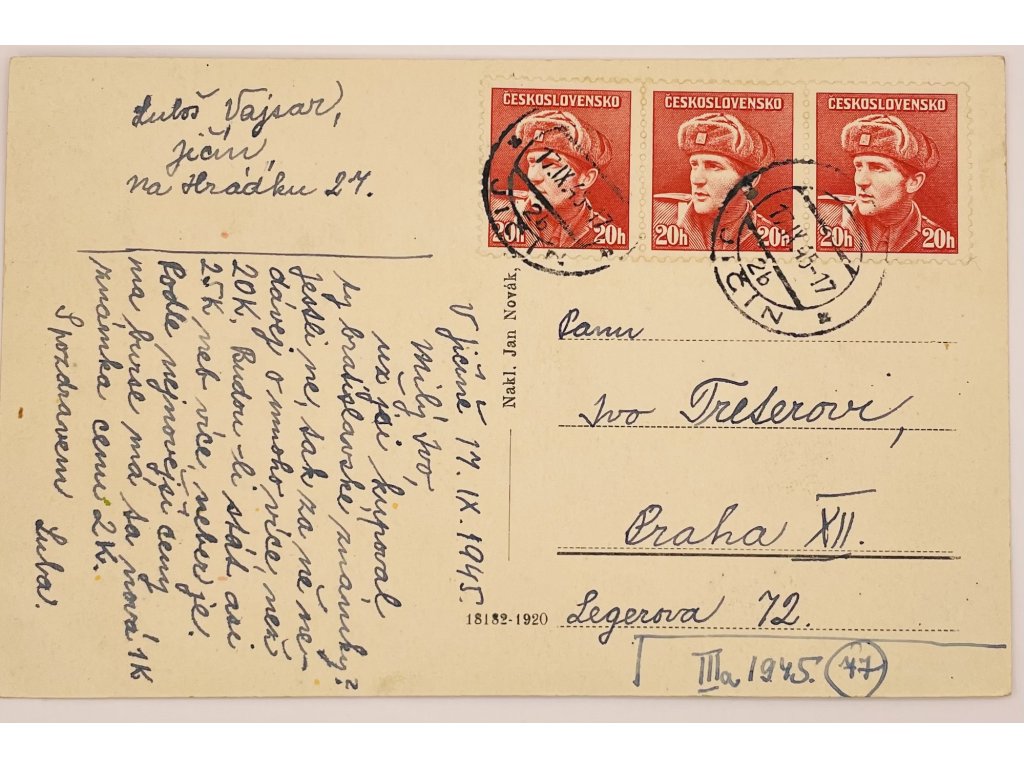 Luboš Vajsar,
Jičín,
na Hrádku 27.
V Jičíně 17. IX. 1945.
Milý Ivo,
už jsi kupoval
ty bratislavské známky?
Jestli ne, tak za ně ne-
dávej o mnoho více, než
20K. Budou-li stát asi
25K neb více, neber je.
Podle nejnovější ceny
na burse má ta nová 1K
známka cenu 2K.
S pozdravem
Luba.
Nakl. Jan Novák,
18182-1920
ČESKOSLOVENSKO
20h 20h
ČESKOSLOVENSKO
20h 20h
ČESKOSLOVENSKO
20h 20h
17.IX.45-17
2b
JIČÍN
17.IX.45-17
2b
Panu
Ivo Treterovi,
Praha XII.
Legerova 72.
IIIa 1945. 77